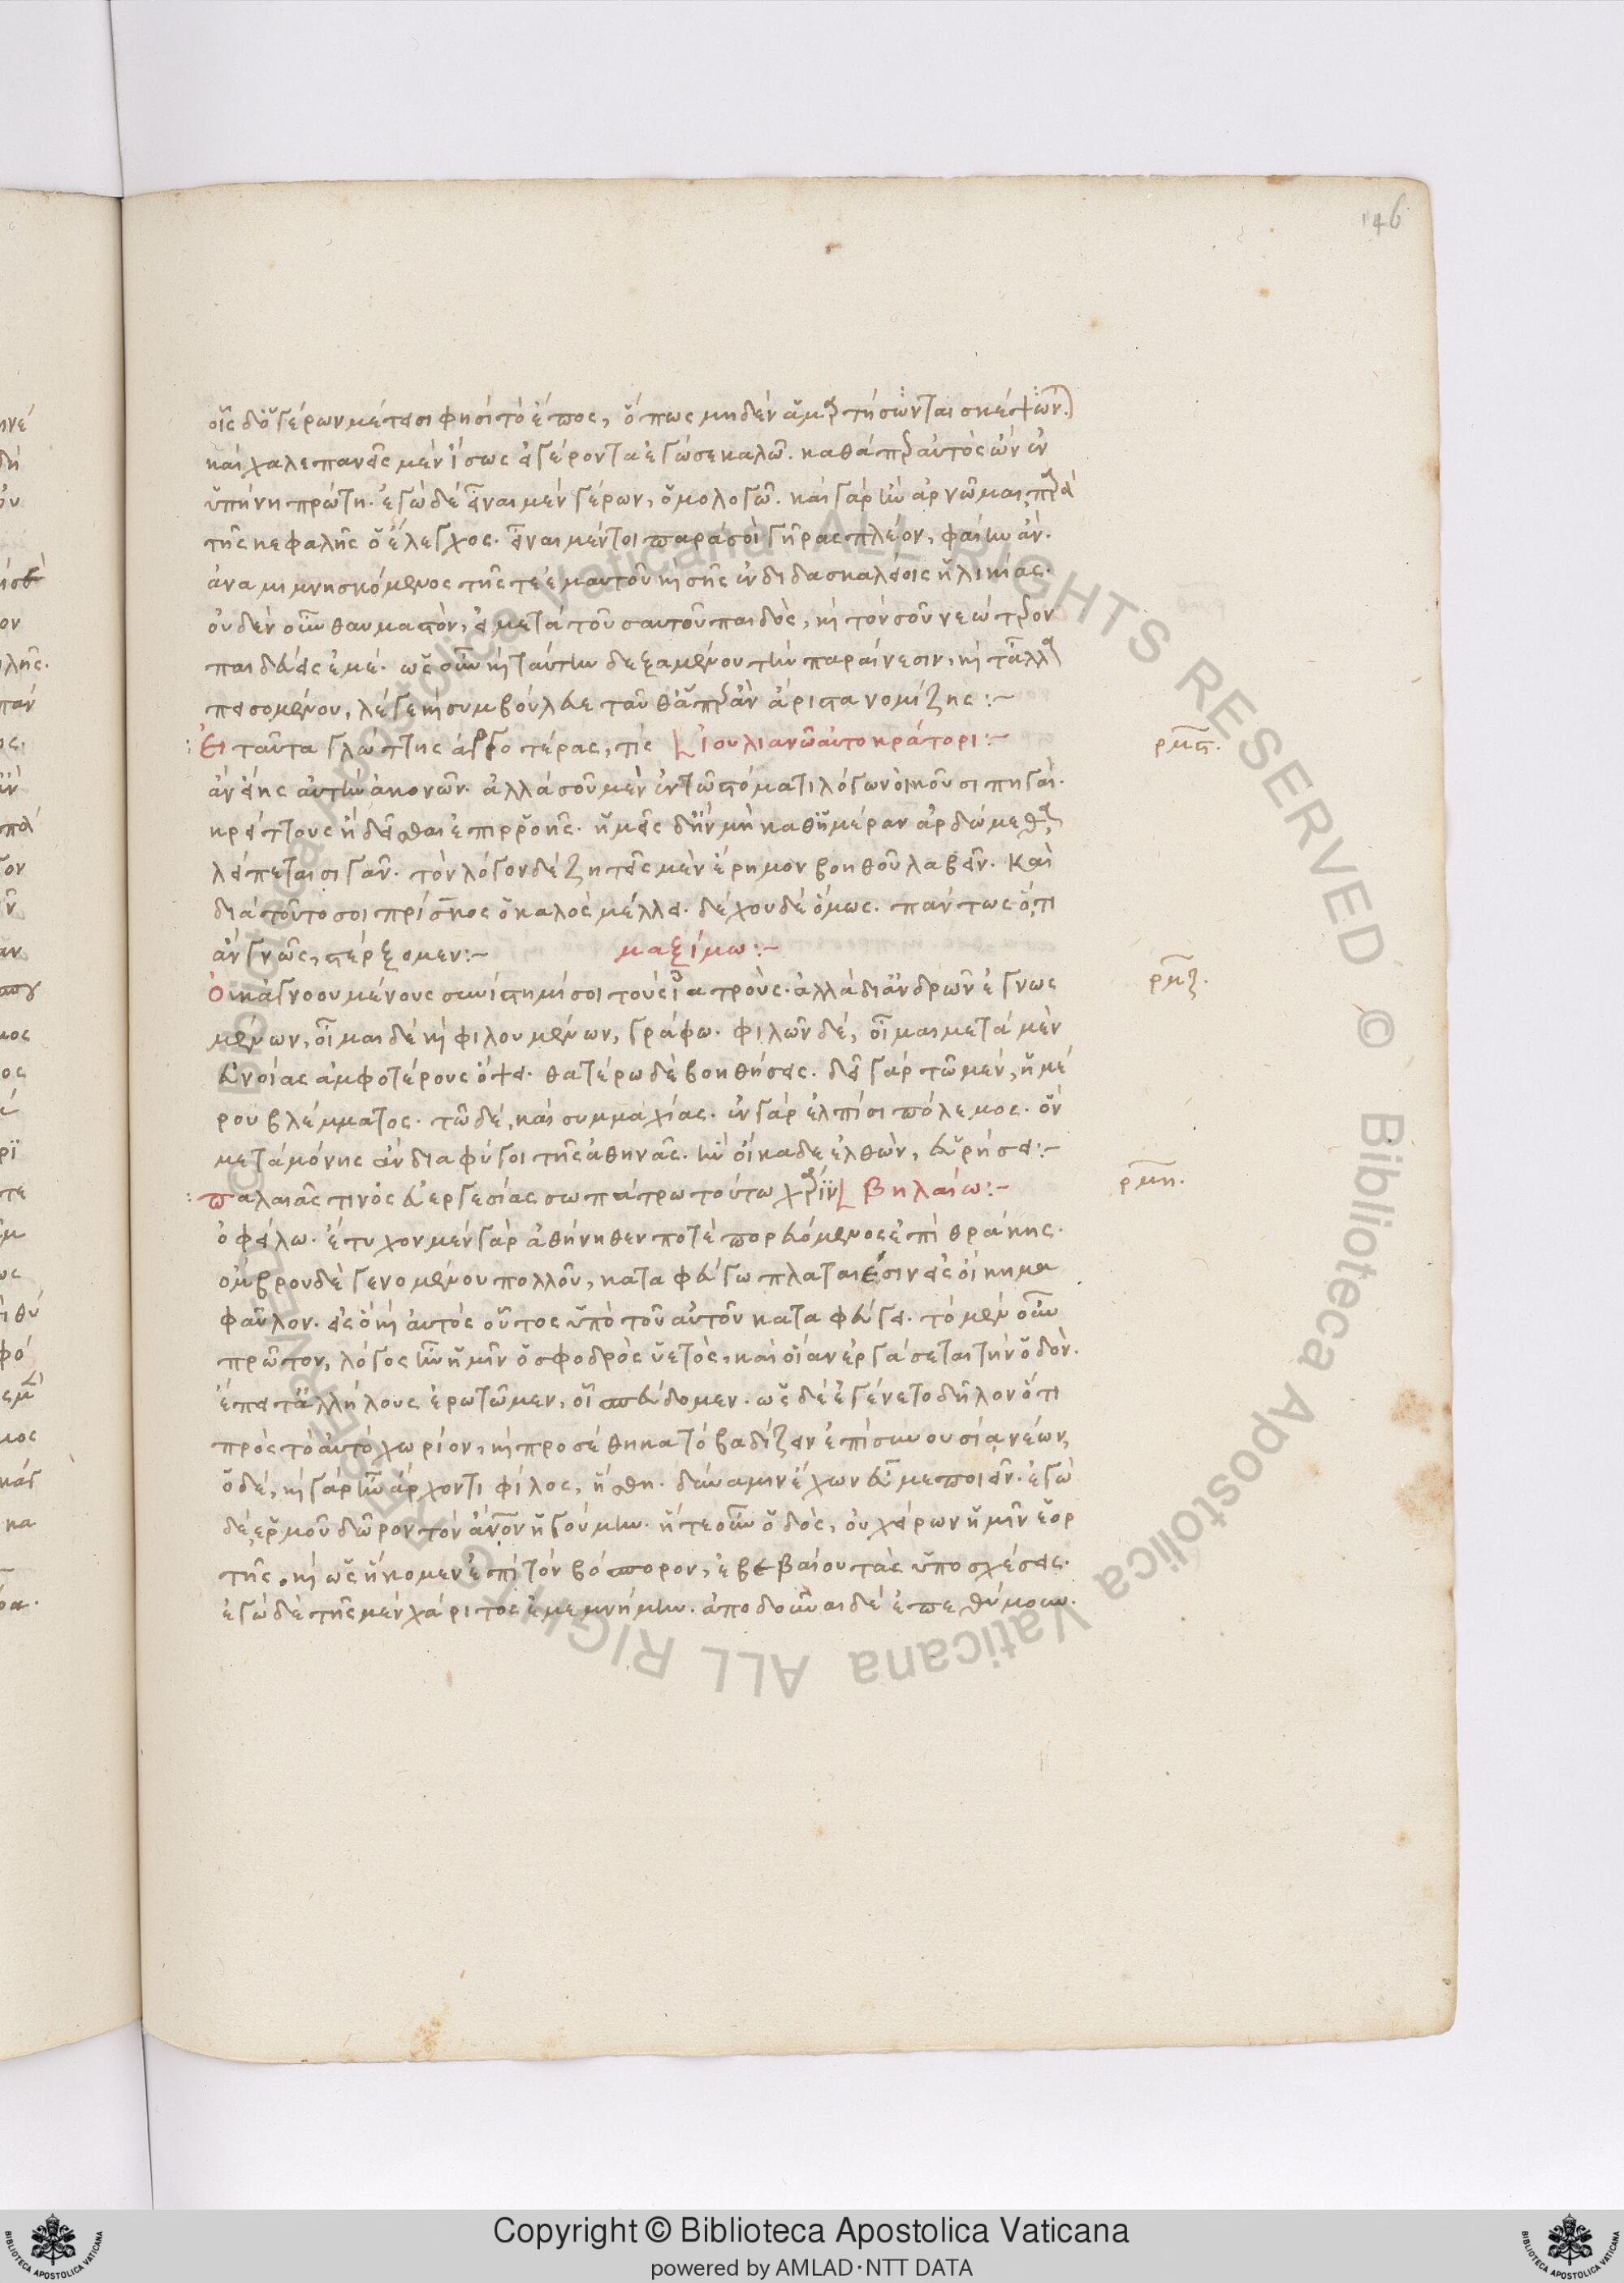 146
οἷς δ' ὁ γέρων μέτεισι φησὶ τὸ ἔπος, ὅπως μηδὲν ἁμαρτήσωνται σκέψιν.
καὶ χαλεπανεῖς μὲν ἴσως εἰ γέροντα ἐγώ σε καλῶ. καθάπερ αὐτὸς ὢν ἐν
ὑπήνῃ πρώτῃ. ἐγὼ δὲ εἶναι μὲν γέρων, ὁμολογῶ. καὶ γὰρ ἢν ἀρνῶμαι, παρὰ
τῆς κεφαλῆς ὁ ἔλεγχος. εἶναι μέντοι παρὰ σοὶ γῆρας πλέον, φαίην ἄν.
ἀναμιμνησκόμενος τῆς τε ἐμαυτοῦ καὶ σῆς ἐν διδασκαλείοις ἡλικίας.
οὐδὲν οὖν θαυμαστὸν, εἰ μετὰ τοῦ σαυτοῦ παιδὸς, καὶ τὸν σοῦ νεώτερον
παιδεύεις ἐμέ. ὡς οὖν καὶ ταύτην δεξαμένου τὴν παραίνεσιν, καὶ τἆλλα
πεισομένου, λέγε καὶ συμβούλευε ταῦθ' ἅπερ ἂν ἄριστα νομίζῃς :-
Εἰ ταῦτα γλώττης ἀργοτέρας, τίς Ἰουλιανῶ αὐτοκράτορι :-
ρμϛ.
ἂν εἴης αὐτὴν ἀκονῶν. ἀλλὰ σοῦ μὲν ἐν τῶ στόματι λόγων οἰκοῦσι πηγαὶ.
κρείττους ἢ δεῖσθαι ἐπιρροῆς. ἡμεῖς δ' ἢν μὴ καθ' ἡμέραν ἀρδώμεθα,
λείπεται σιγᾶν. τὸν λόγον δὲ ζητεῖς μὲν ἔρημον βοηθοῦ λαβεῖν. Καὶ
διὰ τοῦτο σοι πρίσκος ὁ καλὸς μέλλει. δέχου δὲ ὅμως. πάντως ὅ,τι
ἂν γνῶς, στέρξομεν :- μαξίμω :-
ρμζ.
Οὐκ ἀγνοουμένους συνίστημί σοι τοὺς ἰατροὺς. ἀλλὰ δι' ἀνδρῶν ἐγνωσ
μένων, οἶμαι δὲ καὶ φιλουμένων, γράφω. φιλῶν δέ, οἶμαι μετὰ μὲν
εὐνοίας ἀμφοτέρους ὄψει. θατέρω δὲ βοηθήσεις. δεῖ γὰρ τῶ μέν, ἡμέ
ρου βλέμματος. τῶ δέ, καὶ συμμαχίας. ἐν γὰρ ἐλπίσι πόλεμος. ὃν
μετὰ μόνης ἂν διαφύγοι τῆς ἀθηνᾶς. ἢν οἴκαδε ἐλθὼν, εὑρήσει :-
Παλαιᾶς τινὸς εὐεργεσίας σωπάτρω τούτω χάριν Βηλαίω :-
ρμη.
ὀφείλω. ἔτυχον μὲν γὰρ ἀθήνηθεν ποτὲ πορευόμενος ἐπὶ θράκης.
ὄμβρου δὲ γενομένου πολλοῦ, καταφεύγω πλαταιέσιν εἰς οἴκημα
φαῦλον. εἰς ὃ καὶ αὐτὸς οὗτος ὑπὸ τοῦ αὐτοῦ καταφεύγει. τὸ μὲν οὖν
πρῶτον, λόγος ἦν ἡμῖν ὁ σφοδρὸς ὑετὸς, καὶ οἷα ἂν ἐργάσεται τὴν ὁδὸν.
ἔπειτ' ἀλλήλους ἐρωτῶμεν, οἷ σπεύδομεν. ὡς δὲ ἐγένετο δῆλον ὅτι
πρὸς τὸ αὐτὸ χωρίον, καὶ προσέθηκα τὸ βαδίζειν ἐπὶ συνουσία νέων,
ὁ δέ, καὶ γὰρ ἦν ἄρχοντι φίλος, ἥσθη. δύναμιν ἔχων εὖ με ποιεῖν. ἐγὼ
δέ, ἑρμοῦ δῶρον τὸν ἄνον ἡγούμην. ἥ τε οὖν ὁδὸς, οὐ χείρων ἡμῖν ἑορ
τῆς, καὶ ὡς ἥκομεν ἐπὶ τὸν βόσπορον, ἐβεβαίου τὰς ὑποσχέσεις.
ἐγὼ δὲ τῆς μὲν χάριτος ἐμεμνήμην. ἀποδοῦναι δὲ ἐπεθύμουν.
ALL RIGHTS RESERVED © Biblioteca Apostolica Vaticana
Copyright © Biblioteca Apostolica Vaticana
powered by AMLAD·NTT DATA